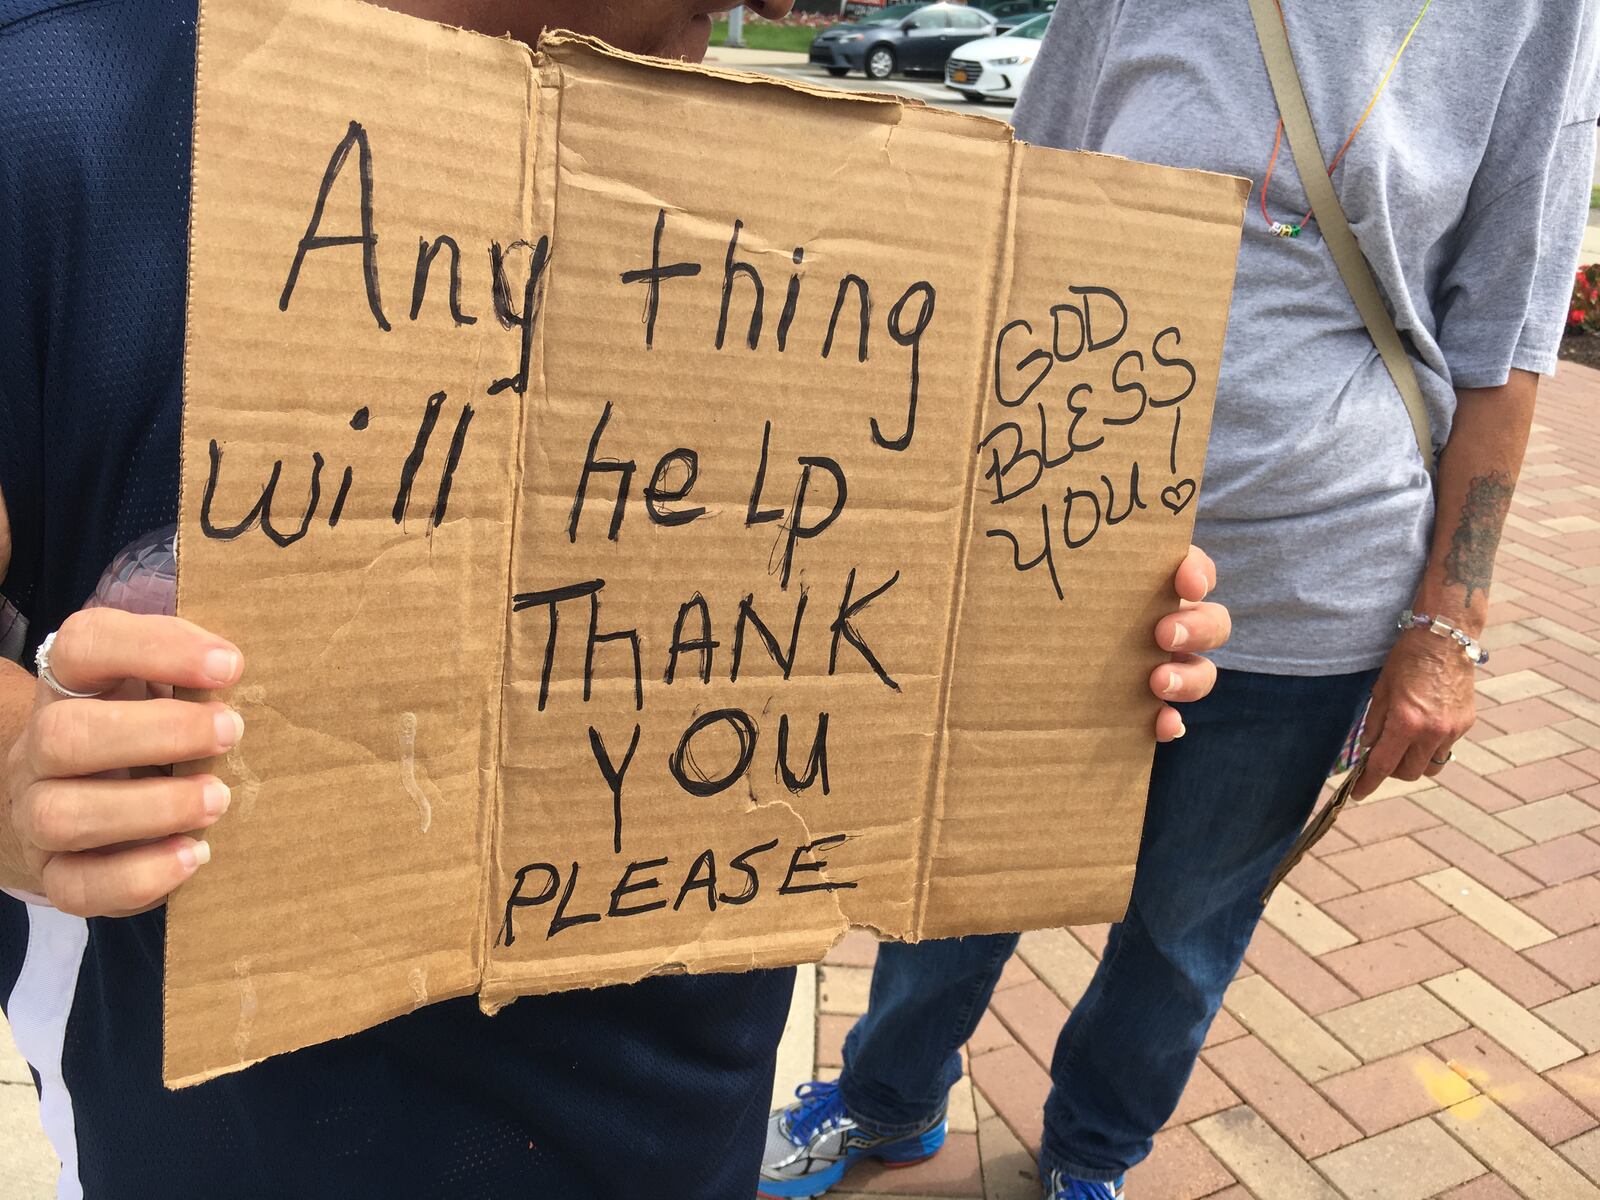 Any thing
will help
THANK
YOU
PLEASE
GOD
BLESS
YOU! ♡